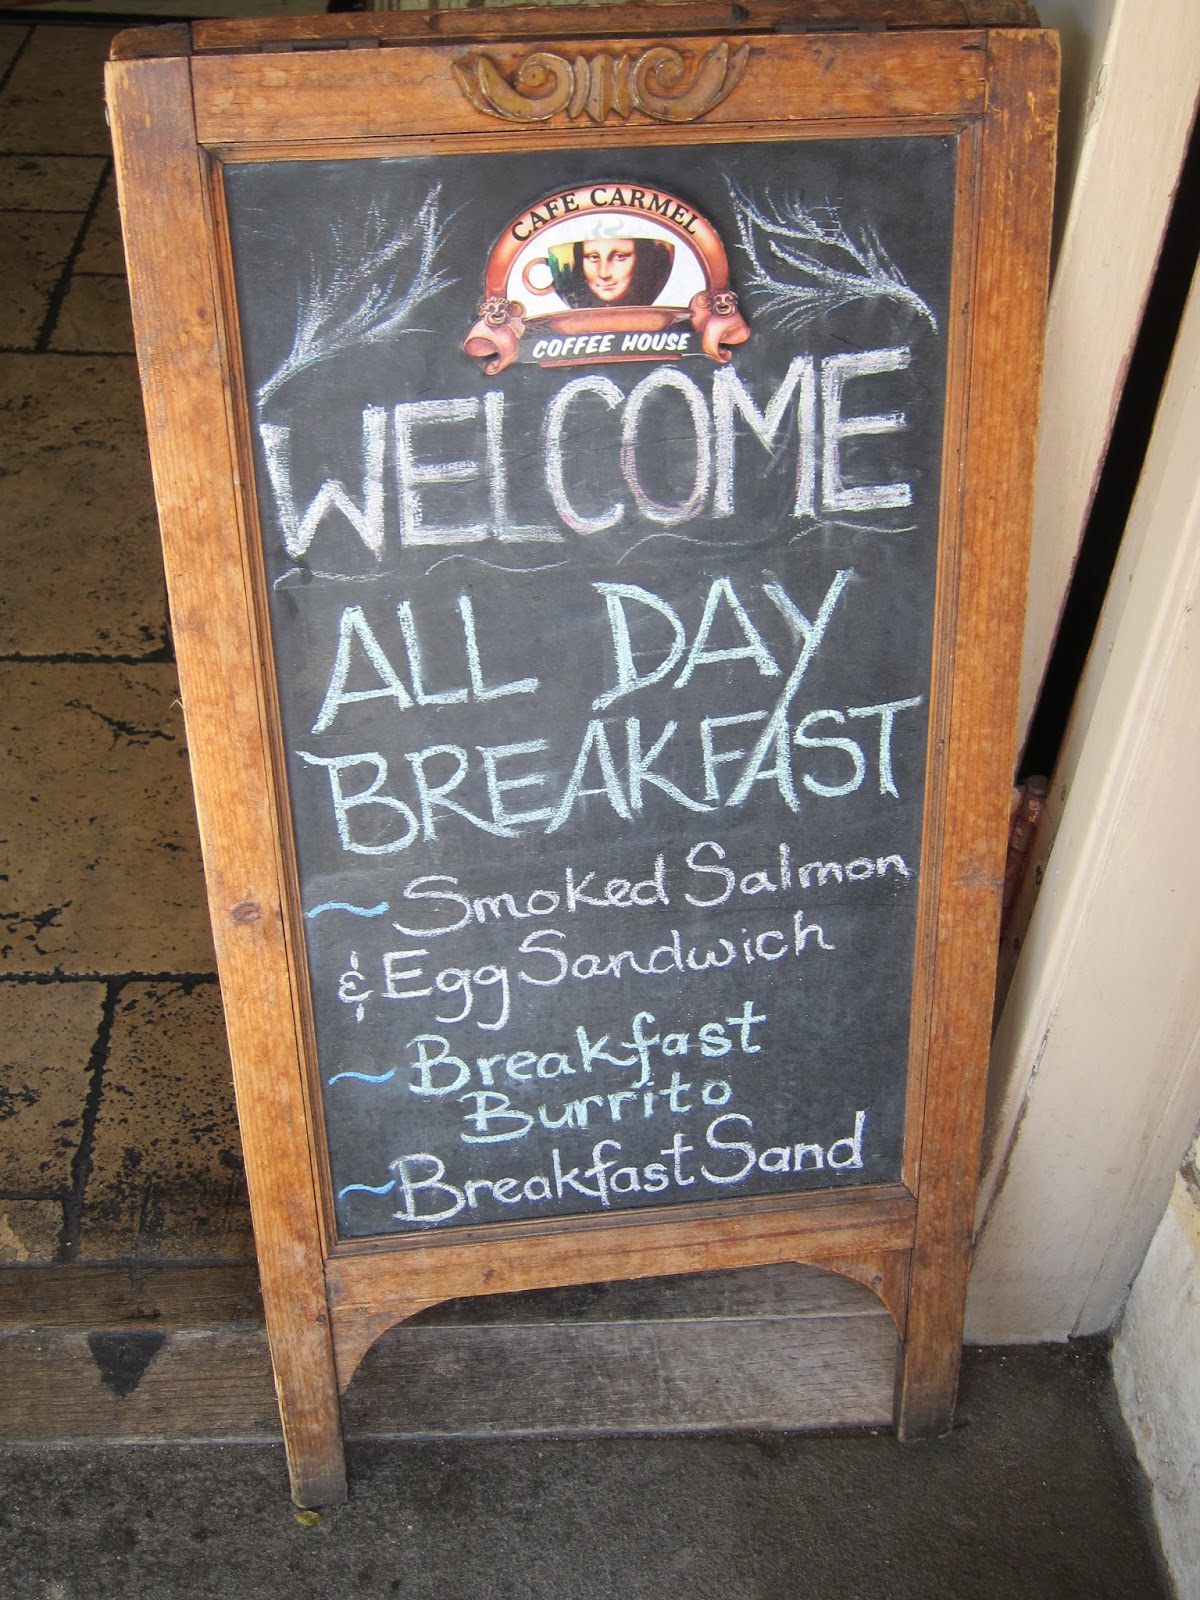 CAFE CARMEL
COFFEE HOUSE
WELCOME
ALL DAY
BREAKFAST
~ Smoked Salmon
& Egg Sandwich
~ Breakfast
Burrito
~ Breakfast Sand